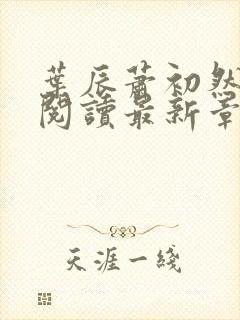 葉辰蕭初然
閱讀最新章
天涯一綫